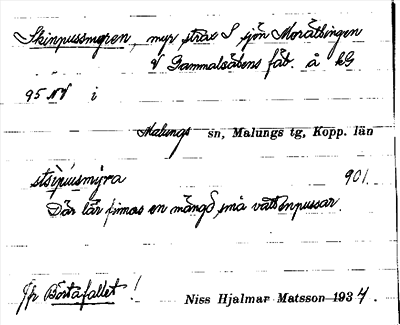 Skinpussmyren, myr strax S sjön Moråttingen
V Gammalsätens fäb. å kG
95 NV i
Malungs sn, Malungs tg, Kopp. län
901
Där lär finnas en mängd små vattenpussar.
Jfr Bortafallet!
Niss Hjalmar Matsson 1934.